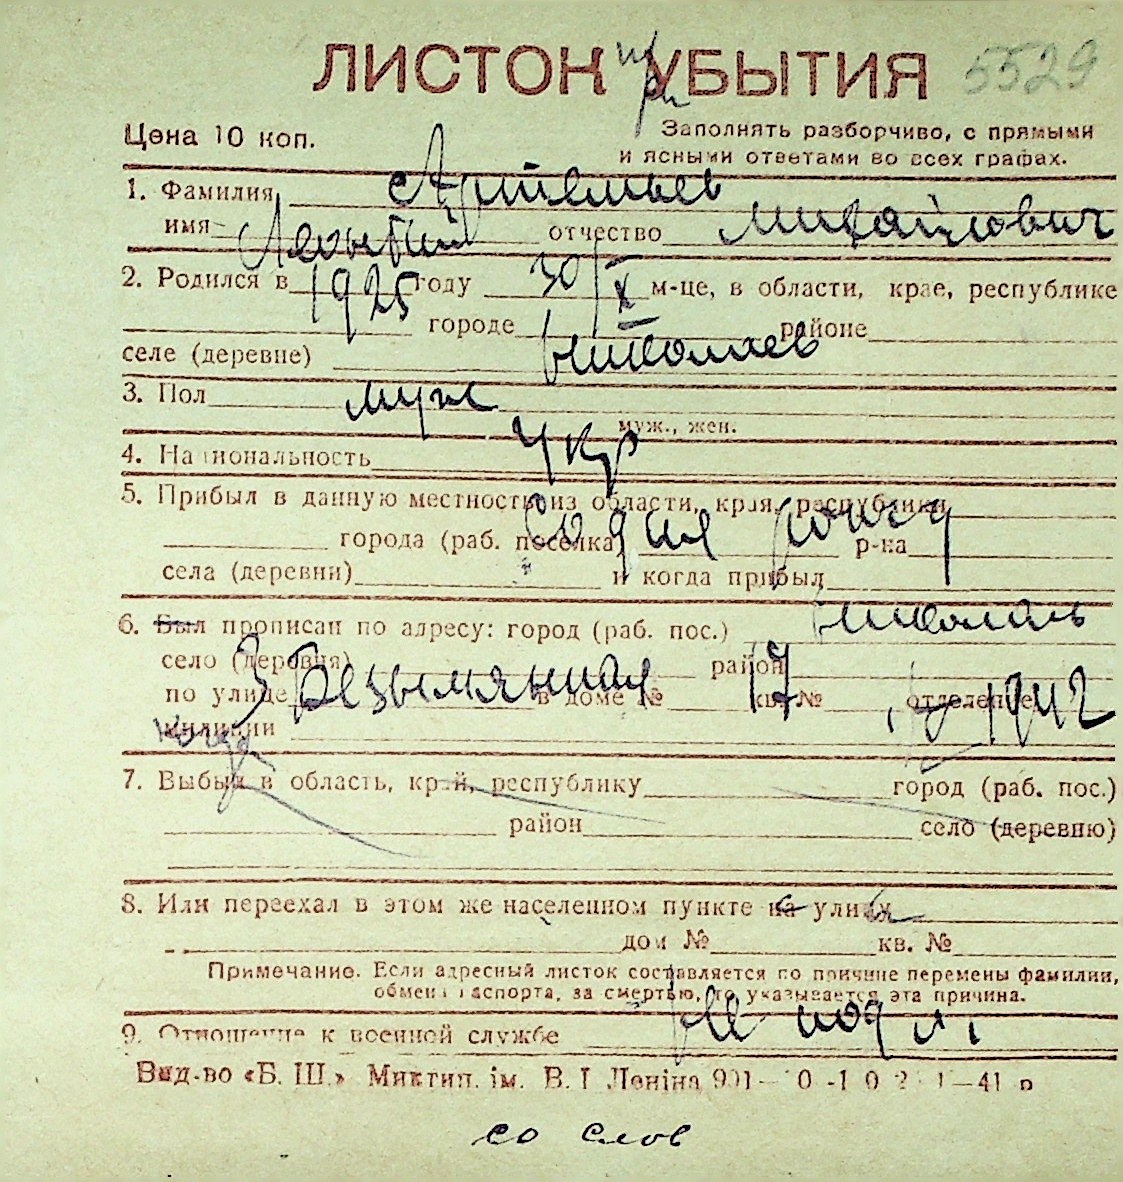 ЛИСТОК при УБЫТИЯ 5529
Цена 10 коп.
Заполнять разборчиво, с прямыми
и ясными ответами во всех графах.
1. Фамилия Артемьев
имя Леонтий отчество Михайлович
2. Родился в 1925 году 30/X м-це, в области, крае, республике
городе районе
селе (деревне) Николаев
3. Пол муж
муж., жен.
4. Национальность Укр
5. Прибыл в данную местность из области, края, республики
города (раб. поселка) р-на
села (деревни) и когда прибыл
6. Был прописан по адресу: город (раб. пос.) Николаев
село (деревня) район
по улице 3 Безымянная в доме № 17 кв. № отделение 1942
милиции
7. Выбыл в область, край, республику город (раб. пос.)
район село (деревню)
8. Или переехал в этом же населенном пункте на улицу
дом № кв. №
Примечание. Если адресный листок составляется по причине перемены фамилии,
обмена паспорта, за смертью, то указывается эта причина.
9. Отношение к военной службе не подл.
Вид-во «Б. Ш.» Миктип. ім. В. І Леніна
со слов